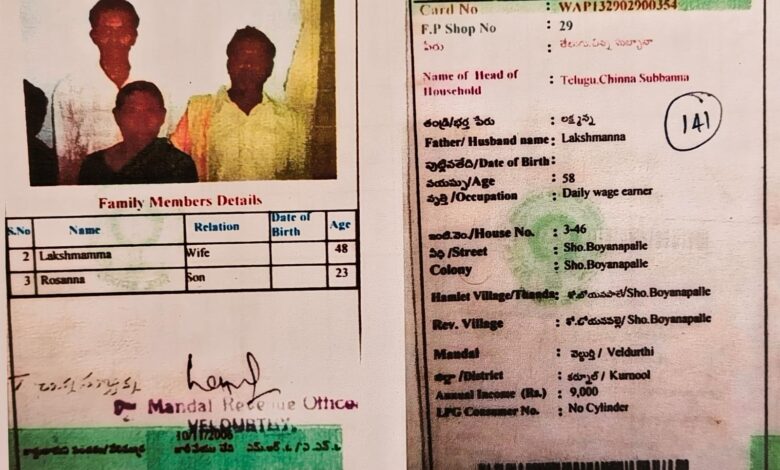 Family Members Details
S.No Name Relation Date of Birth Age
2 Lakshmamma Wife 48
3 Rosanna Son 23
Mandal Revenue Office
VELDURTHY,
10/11/2006
Card No : WAP132902900354
F.P Shop No : 29
పేరు :
Name of Head of Household : Telugu.Chinna Subbanna
తండ్రి/భర్త పేరు : లక్ష్మన్న
Father/ Husband name : Lakshmanna
141
పుట్టినతేది/Date of Birth :
వయస్సు/Age : 58
వృత్తి /Occupation : Daily wage earner
ఇంటి.నెం./House No. : 3-46
వీధి /Street : Sho.Boyanapalle
Colony : Sho.Boyanapalle
Hamlet Village/Thanda : /Sho.Boyanapalle
Rev. Village : /Sho.Boyanapalle
Mandal : వెల్దుర్తి / Veldurthi
జిల్లా /District : కర్నూల్ / Kurnool
Annual Income (Rs.) : 9,000
LPG Consumer No. : No Cylinder